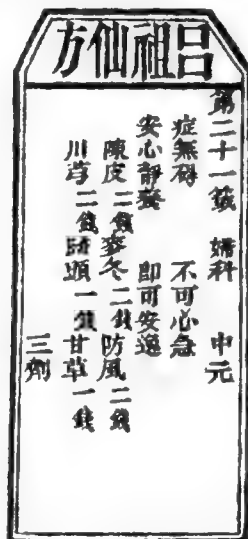 呂祖仙方
第二十一籤 婦科 中元
症無碍 不可心急
安心靜養 即可安逸
陳皮二錢 麥冬二錢 防風二錢
川芎二錢 頭一錢 甘草一錢
三劑